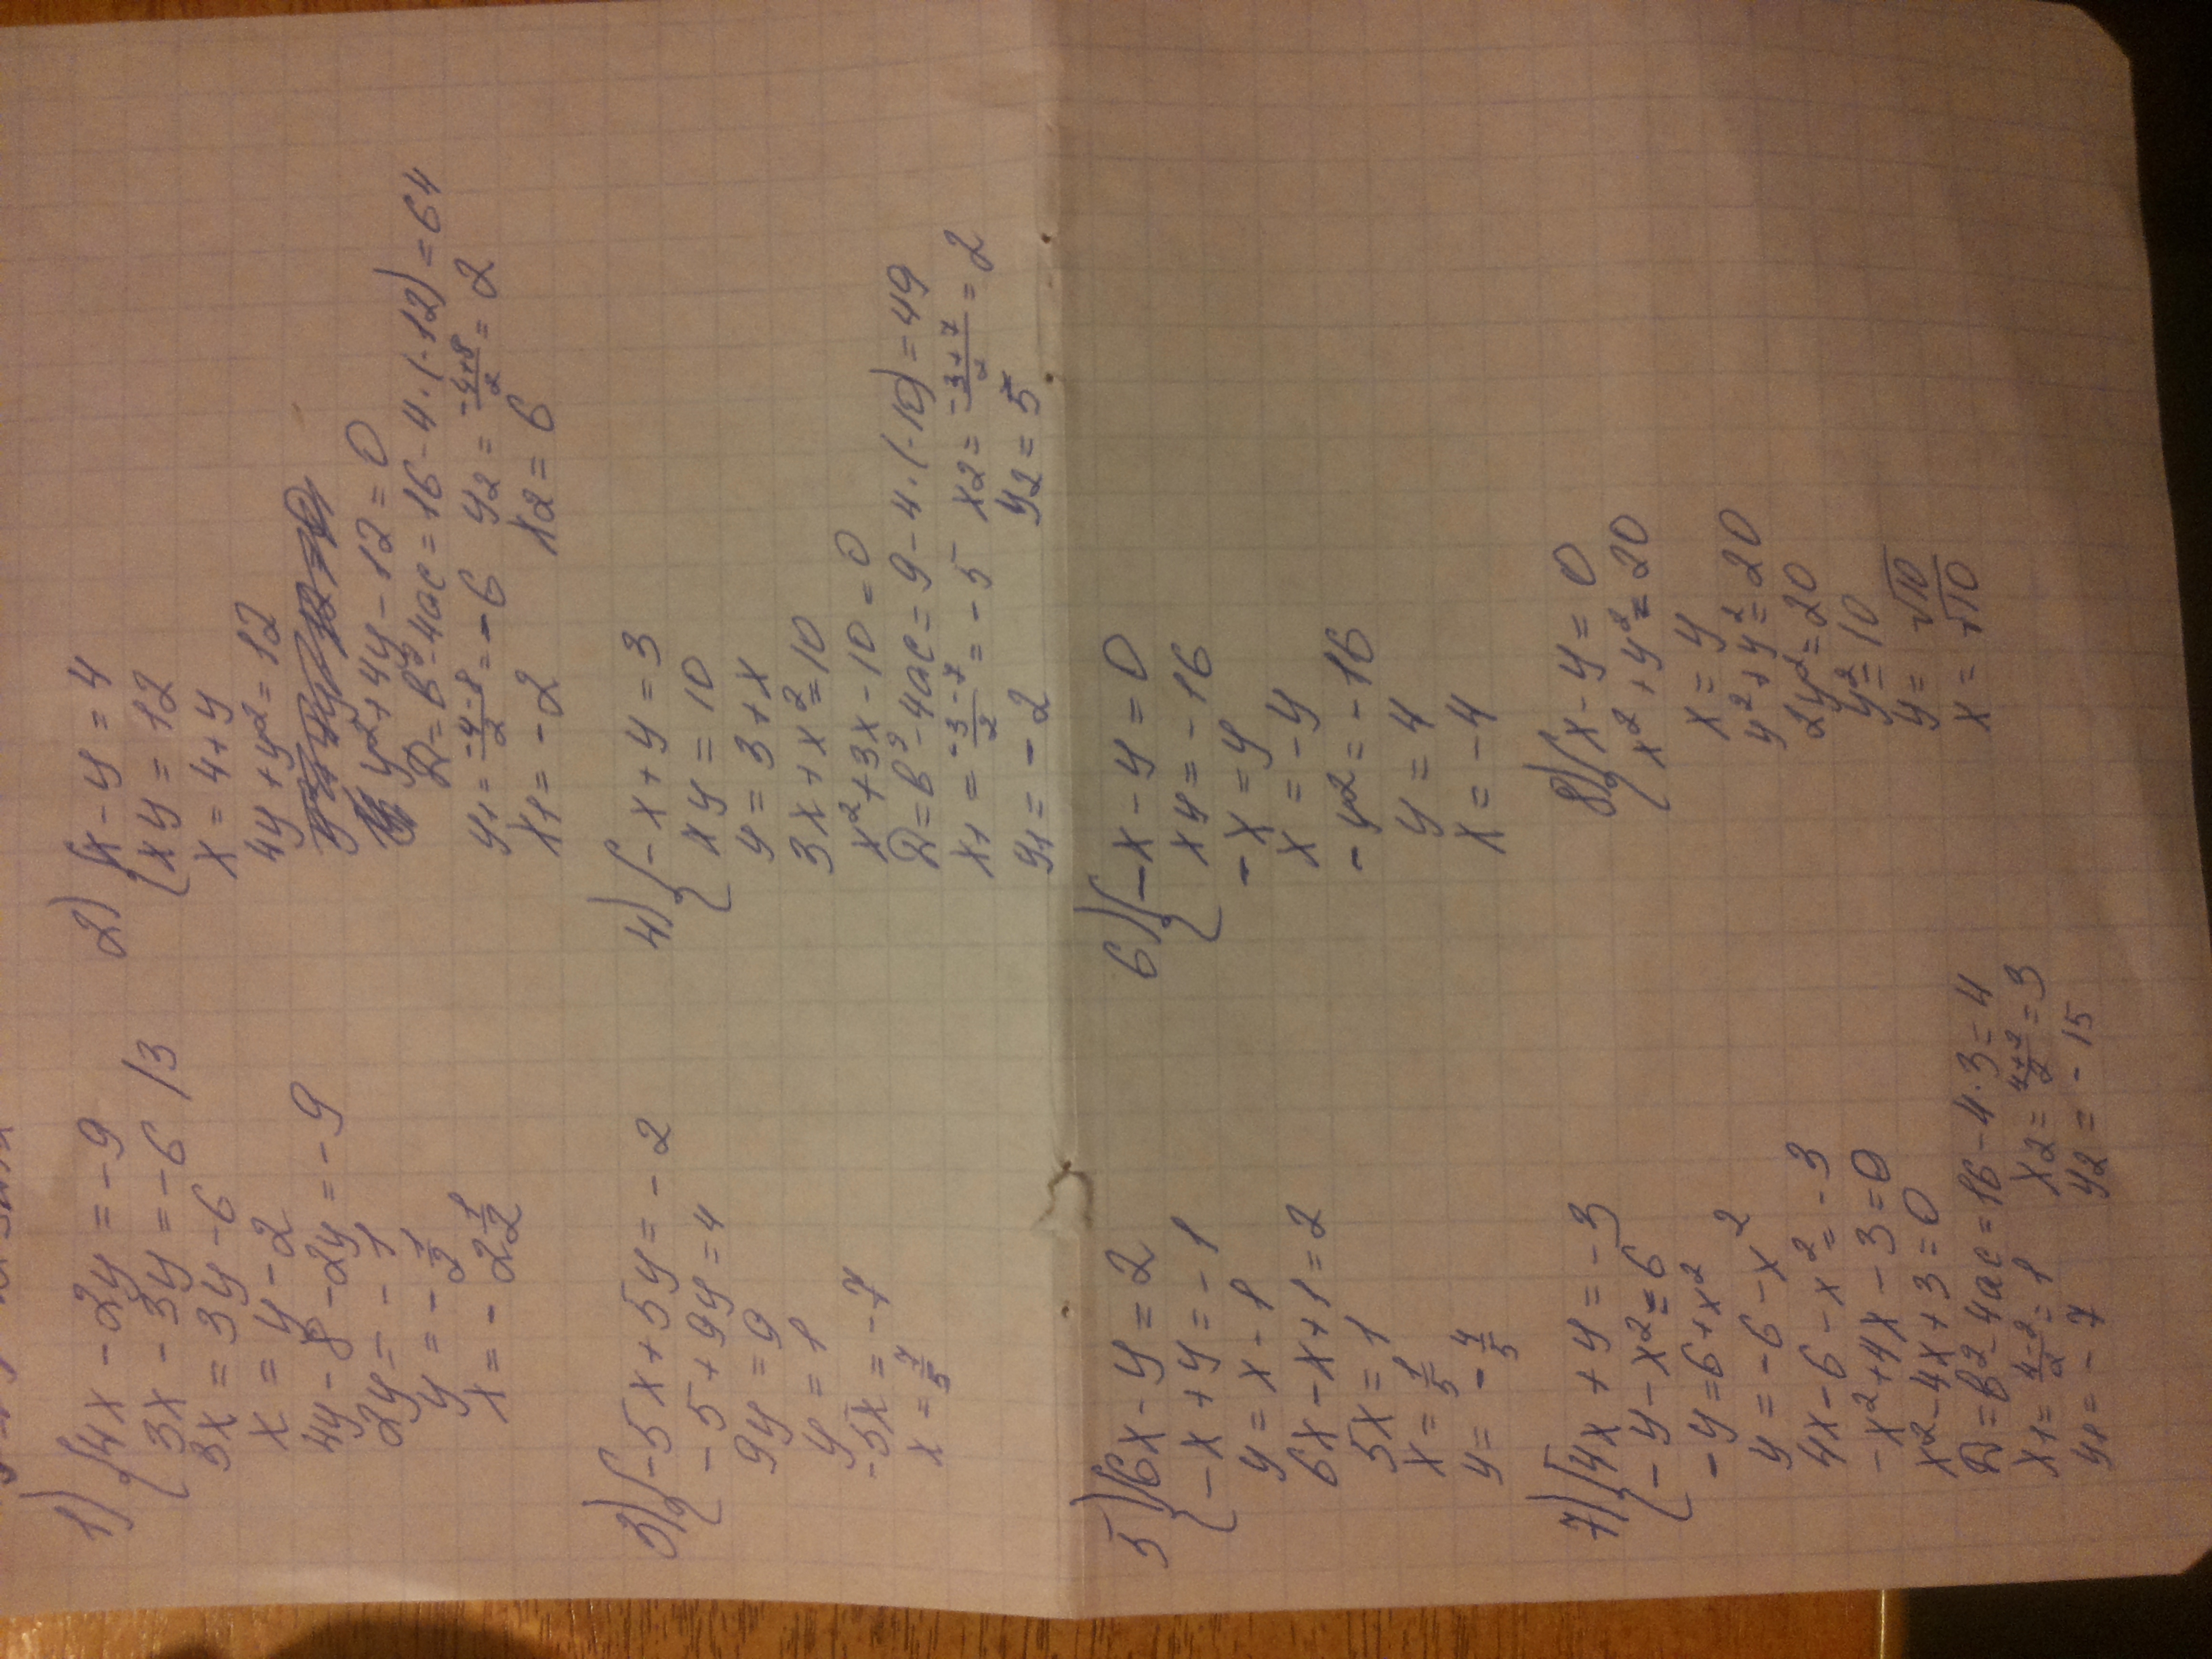 1) {4x - 2y = -9
{3x - 3y = -6 /3
3x = 3y - 6
x = y - 2
4y - 8 - 2y = -9
2y = -1
y = -1/2
x = -2 1/2
2) {x - y = 4
{xy = 12
x = 4 + y
4y + y² = 12
y² + 4y - 12 = 0
D = b² - 4ac = 16 - 4·(-12) = 64
y1 = (-4-8)/2 = -6 y2 = (-4+8)/2 = 2
x1 = -2 x2 = 6
3) {-5x + 5y = -2
{-5 + 9y = 4
9y = 9
y = 1
-5x = -7
x = 7/5
4) {-x + y = 3
{xy = 10
y = 3 + x
3x + x² = 10
x² + 3x - 10 = 0
D = b² - 4ac = 9 - 4·(-10) = 49
x1 = (-3-7)/2 = -5 x2 = (-3+7)/2 = 2
y1 = -2 y2 = 5
5) {6x - y = 2
{-x + y = -1
y = x - 1
6x - x + 1 = 2
5x = 1
x = 1/5
y = -4/5
6) {-x - y = 0
{xy = -16
-x = y
x = -y
-y² = -16
y = 4
x = -4
7) {4x + y = -3
{-y - x² = 6
-y = 6 + x²
y = -6 - x²
4x - 6 - x² = -3
-x² + 4x - 3 = 0
x² - 4x + 3 = 0
D = b² - 4ac = 16 - 4·3 = 4
x1 = (4-2)/2 = 1 x2 = (4+2)/2 = 3
y1 = -7 y2 = -15
8) {x - y = 0
{x² + y² = 20
x = y
y² + y² = 20
2y² = 20
y² = 10
y = √10
x = √10